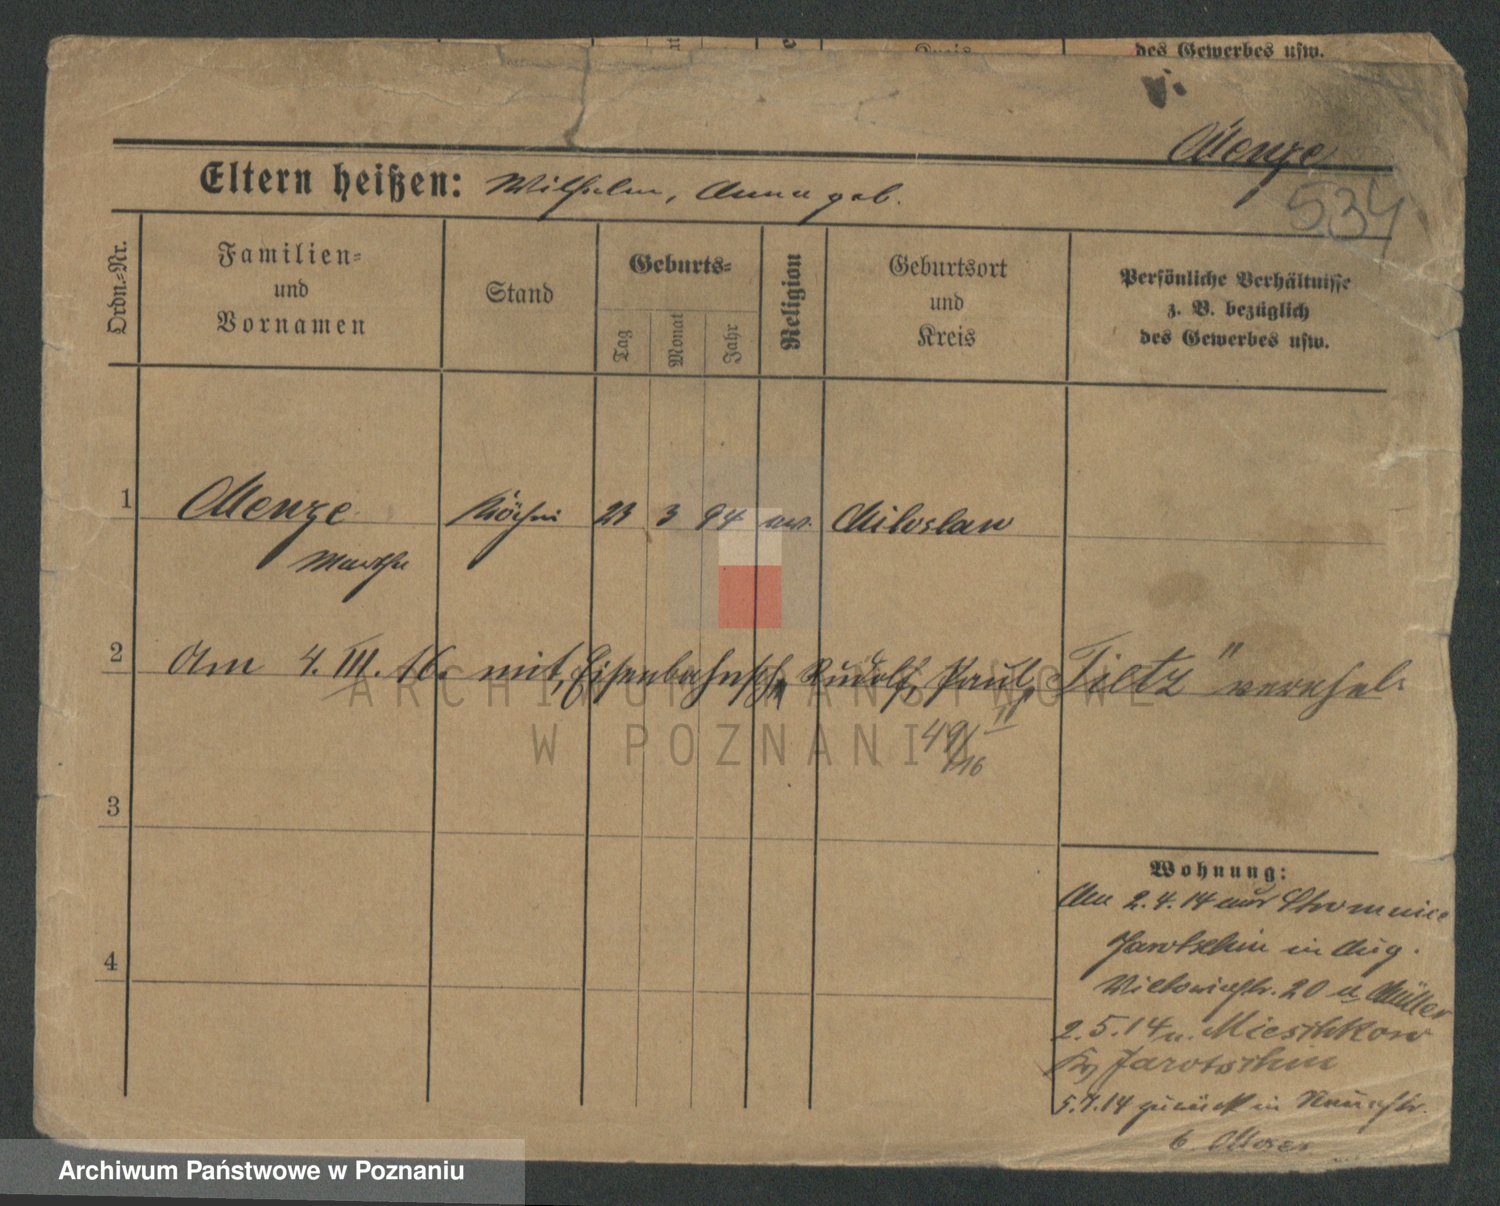 des Gewerbes usw.
Menze
Eltern heißen: Wilhelm, Anna geb.
534
Ordn.-Nr.
Familien-
und
Vornamen
Stand
Geburts-
Tag
Monat
Jahr
Religion
Geburtsort
und
Kreis
Persönliche Verhältnisse
z. B. bezüglich
des Gewerbes usw.
1 Menze Köchin 23 3 94 ev. Miloslaw
Martha
2 Am 4. III. 16. mit Eisenbahnsch. Rudolf Paul "Tietz" verehel.
49
16
3
4
Wohnung:
Am 2.4.14 aus
Jarotschin in Aug.
Viktoriastr. 20 b. Müller
2.5.14 n. Mieschkow
Kr. Jarotschin
5.7.14 zurück in
b. Moses
ARCHIWUM PAŃSTWOWE
W POZNANIU
Archiwum Państwowe w Poznaniu